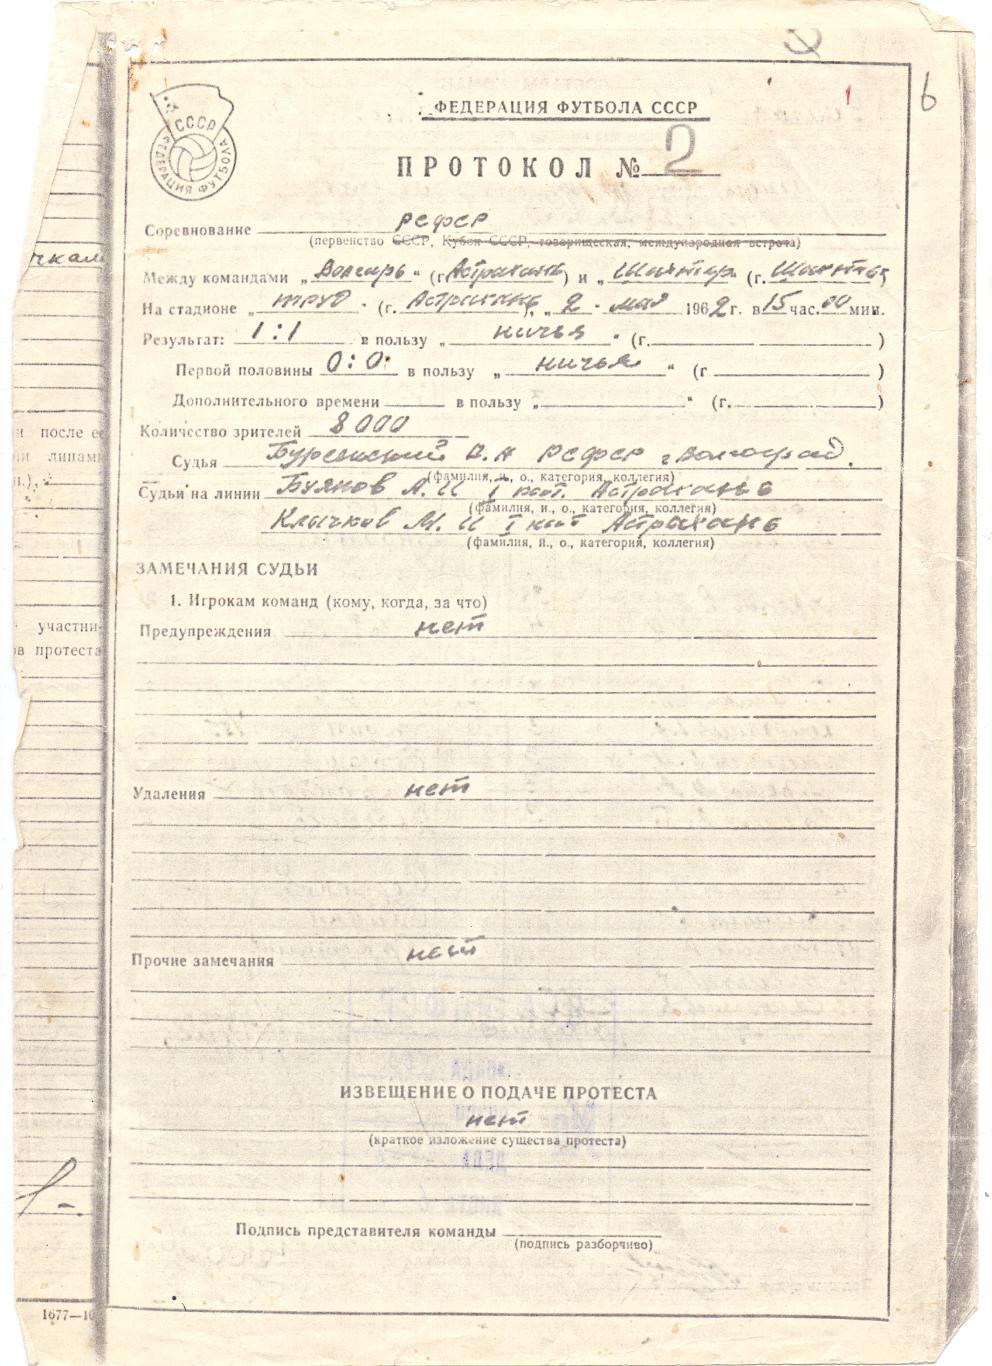 6
1
СССР
ФЕДЕРАЦИЯ ФУТБОЛА
ФЕДЕРАЦИЯ ФУТБОЛА СССР
ПРОТОКОЛ № 2
Соревнование РСФСР
(первенство СССР, Кубок СССР, товарищеская, международная встреча)
Между командами „Волгарь“ (г. Астрахань) и „Шахтер“ (г. Шахты)
На стадионе „Труд“ (г. Астрахань), „2“ мая 1962 г. в 15 час. 00 мин.
Результат: 1:1 в пользу „ничья“ (г. )
Первой половины 0:0 в пользу „ничья“ (г )
Дополнительного времени в пользу „ “ (г. )
Количество зрителей 8000
Судья РСФСР г Волгоград
(фамилия, и., о., категория, коллегия)
Судьи на линии Буянов А.И I кат. Астрахань
(фамилия, и., о., категория, коллегия)
Клычков М. И I кат Астрахань
(фамилия, и., о., категория, коллегия)
ЗАМЕЧАНИЯ СУДЬИ
1. Игрокам команд (кому, когда, за что)
Предупреждения нет
Удаления нет
Прочие замечания нет
ИЗВЕЩЕНИЕ О ПОДАЧЕ ПРОТЕСТА
нет
(краткое изложение существа протеста)
Подпись представителя команды
(подпись разборчиво)
и после ее
и лицами
.)
участни-
в протеста
1677—10